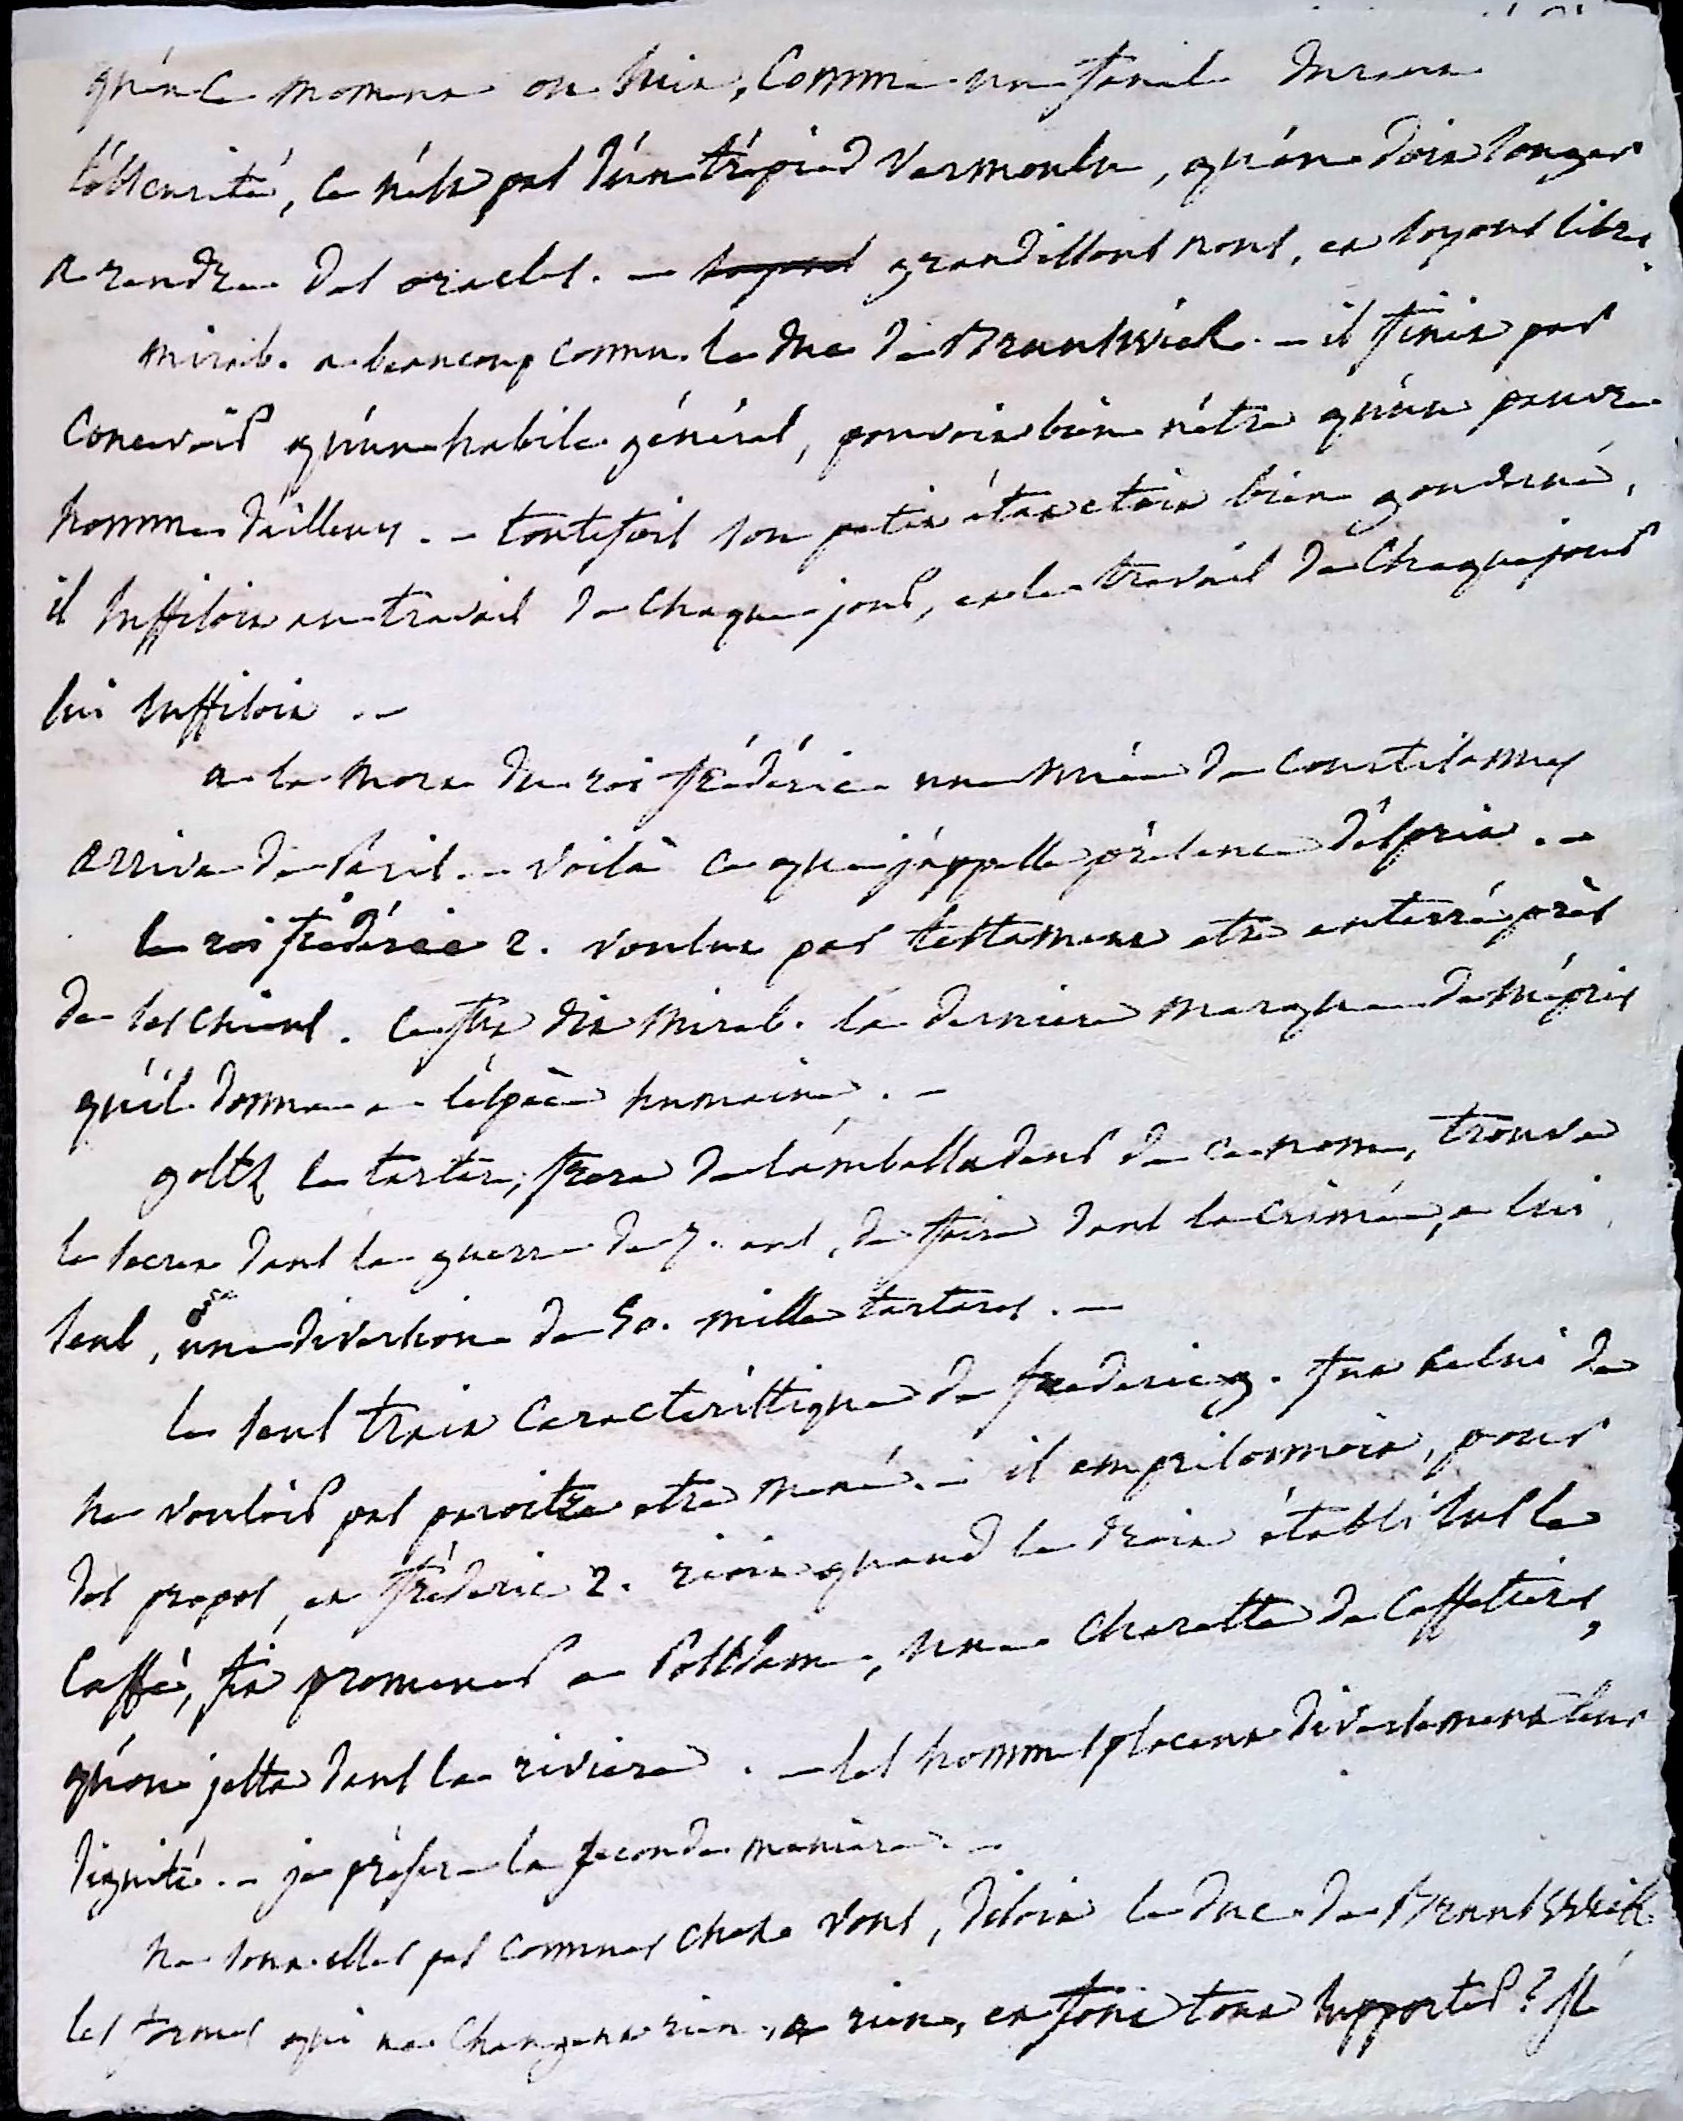 qu'en ce moment on suit, comme un fanal durant
l'obscurité, ce n'est pas d'un trépied vermoulu, qu'on doit songer
a rendre des oracles. — soyons grandissons nous, et soyons libres.
mirab. a beaucoup connu le duc de Brunswick. — il finit par
concevoir qu'un habile général, pouvoit bien n'être qu'un pauvre
homme d'ailleurs. — toutefois son petit état etoit bien gouverné,
il suffisoit au travail de chaque jour, et le travail de chaque jour
lui suffisoit. —
a la mort du roi frédéric une nuée de
arriva de Paris. — voilà ce que j'appelle présence d'esprit. —
le roi frédéric 2. voulut par testament etre enterré près
de ses chiens. ce fut dit mirab. la derniere marque de mépris
qu'il donna a l'éspèce humaine. —
goltz le tartare, frere de l'ambassadeur de ce nom, trouva
le secret dans la guerre de 7. ans, de faire dans la crimée, a lui
seul, une diversion de 50. mille tartares. —
le seul trait caracteristique de frederic g. fut celui de
ne vouloir pas paroitre etre mené. — il emprisonnoit, pour
des propos, et fréderic 2. rioit quand le droit établi sur le
caffé, fit promener a Postdam, une charette de caffetieres,
qu'on jetta dans la riviere. — les hommes placent diversement leur
dignité. — je préfere la seconde maniere. —
ne sont-elles pas connues chez vous, disoit le duc de Brunswick
les formes qui ne changent rien, a rien, et font tout supporter? Il